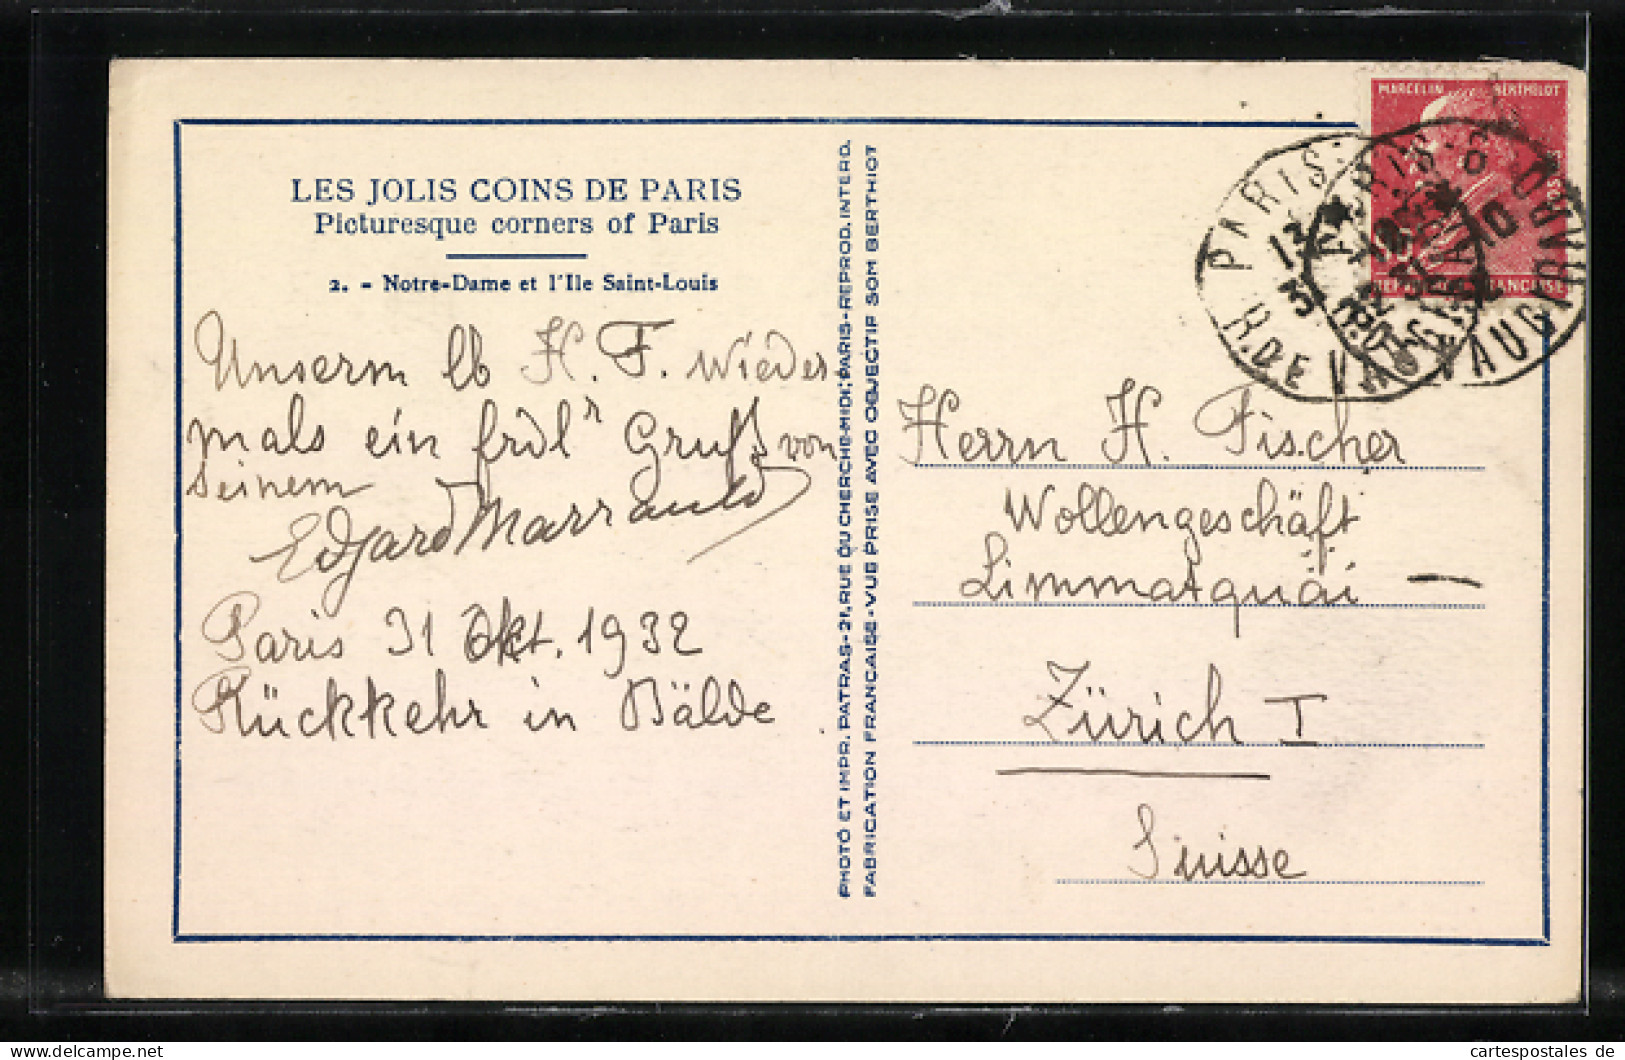 LES JOLIS COINS DE PARIS
Picturesque corners of Paris
2. - Notre-Dame et l'Ile Saint-Louis
Unserm lb H. F. wieder
mals ein frdlr Gruß von
seinem
Edgard
Paris 31 Okt. 1932
Rückkehr in Bälde
PHOTO ET IMPR. PATRAS-21, RUE DU CHERCHE-MIDI, PARIS-REPROD. INTERD.
FABRICATION FRANCAISE-VUE PRISE AVEC OBJECTIF SOM BERTHIOT
MARCELIN BERTHELOT
FRANÇAISE
PARIS
R. DE VAUGIRARD
Herrn H. Fischer
Wollengeschäft
Limmatquai
Zürich I
Suisse
cartespostales de